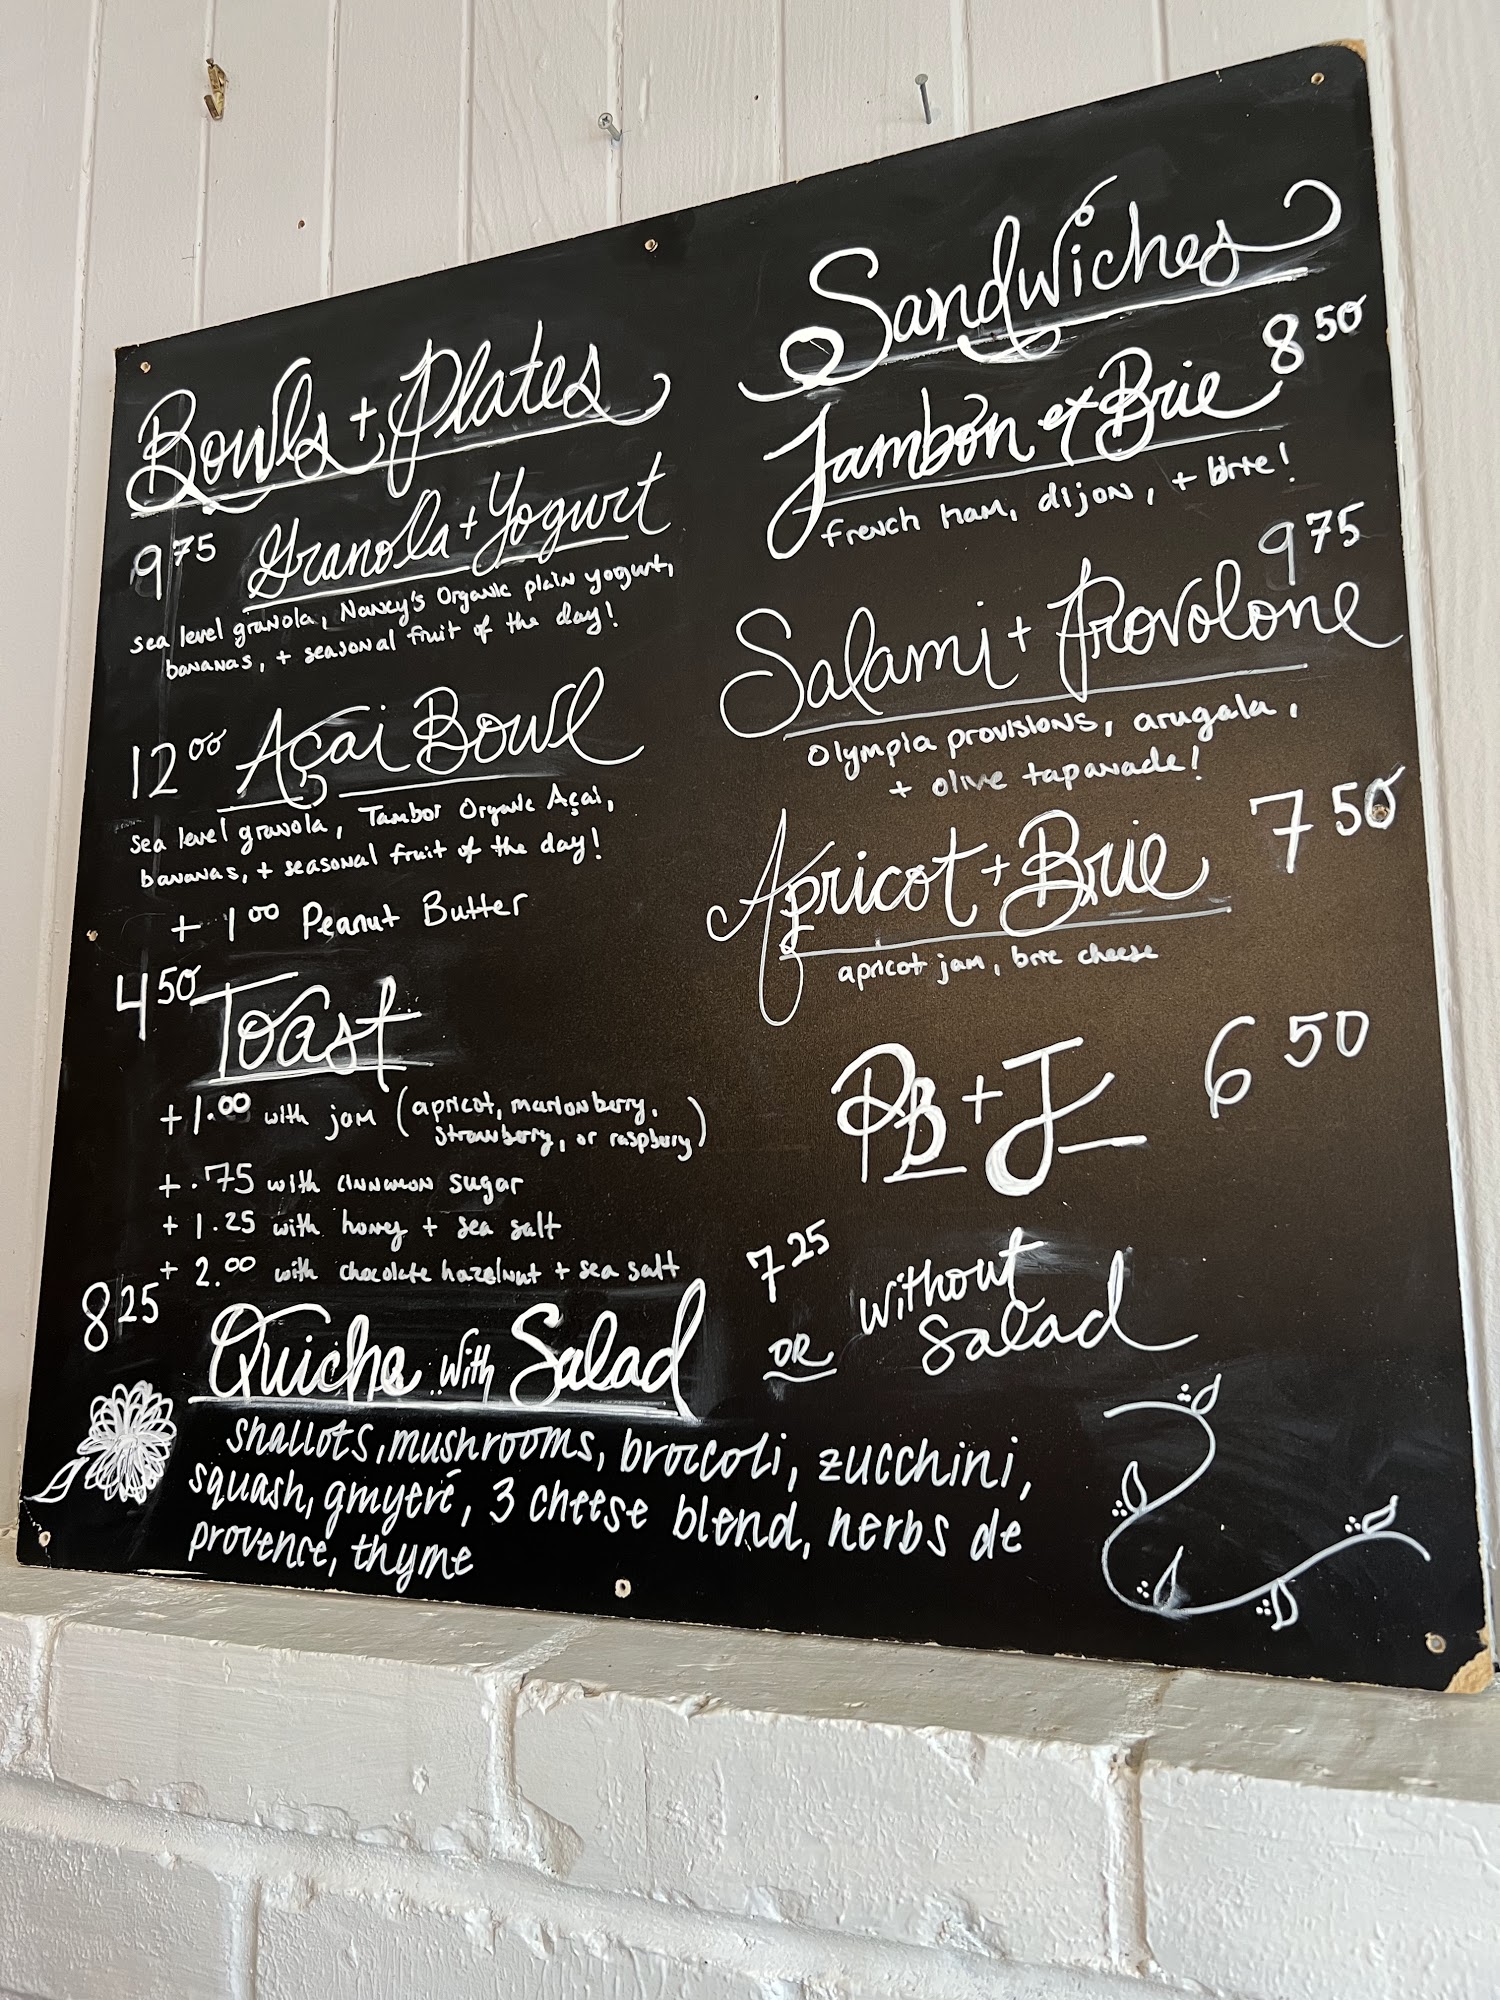 Bowls + Plates
9.75 Granola + Yogurt
sea level granola, Nancy's Organic plain yogurt,
bananas, + seasonal fruit of the day!
12.00 Açai Bowl
sea level granola, Tambor Organic Açai,
bananas, + seasonal fruit of the day!
+ 1.00 Peanut Butter
4.50 Toast
+ 1.00 with jam (apricot, marionberry,
strawberry, or raspberry)
+ .75 with cinnamon sugar
+ 1.25 with honey + sea salt
+ 2.00 with chocolate hazelnut + sea salt
8.25 Quiche with Salad
7.25 without
OR Salad
shallots, mushrooms, broccoli, zucchini,
squash, gruyeré, 3 cheese blend, herbs de
provence, thyme
Sandwiches
Jambon et Brie 8.50
french ham, dijon, + brie!
Salami + Provolone 9.75
Olympia provisions, arugala,
+ olive tapanade!
Apricot + Brie 7.50
apricot jam, brie cheese
PB + J 6.50